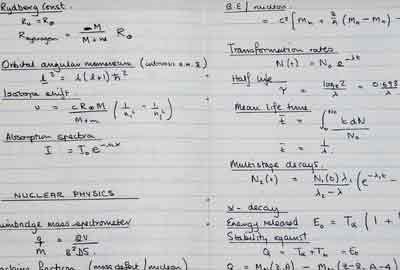 Rydberg Const.
R₀ = R∞
R hydrogen = M / M + m R∞
Orbital angular momentum (
l² = l(l+1)ħ²
Isotope shift.
υ = cR∞M / M+m (1/n₁² - 1/n₂²)
Absorption spectra
I = I₀e
NUCLEAR PHYSICS
mass spectrometer
q/M = 2V / B²DS
fraction (mass defect / nucleon)
B.E / nucleon
= c² [Mn + Z/A (MH - Mn) -
Transformation rates
N(t) = N₀ e^-λt
Half life
τ = loge2 / λ = 0.693 / λ
Mean life time
t̄ = ∫ tdN / N₀
t̄ = 1/λ
Multistage decays.
N₂(t) = N₁(0)λ₁ / λ₂ - λ (e^-λ₁t -
α - decay
Energy released E₀ = Tα (1 +
Stability against
Q = Tα + Tb = E₀
Q = M (Z,A) - M (Z-2, A-4)